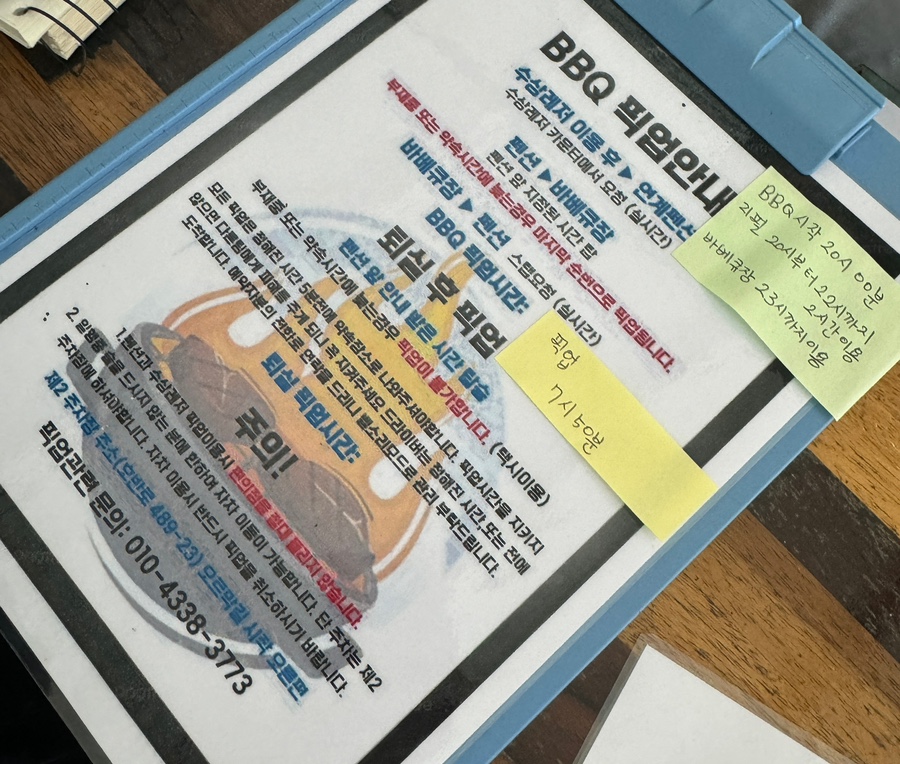 BBQ 픽업안내
수상레저 이용 후 ▶ 연계펜션
수상레저 카운터에서 요청 (실시간)
펜션 ▶ 바베큐장
펜션 앞 지정된 시간 탑
부재중 또는 약속시간에 늦는경우 마지막 순번으로 픽업됩니다.
바베큐장 ▶ 펜션 스탭요청 (실시간)
BBQ 픽업시간:
퇴실 후 픽업
펜션 앞 안내 받은 시간 탑승
부재중 또는 약속시간에 늦는경우 픽업이 불가합니다. (택시이용)
모든 픽업은 정해진 시간 5분전에 약속장소로 나와주셔야합니다. 픽업시간을 지키지
않으면 다른팀에게 피해를 주게 되니 꼭 지켜주세요 드라이버는 정해진 시간,또는 전에
도착합니다. 예약자분의 전화로 연락을 드리니 벨소리모드로 관리 부탁드립니다.
퇴실 픽업시간:
주의!
1.펜션과 수상레저 픽업이용시 편의점을 절대 들리지 않습니다.
2. 일행중 술을 드시지 않는 분에 한하여 자차 이동이 가능합니다. 단 주차는 제2
주차장에 하셔야합니다. 자차 이동시 반드시 픽업을 취소하시기 바랍니다.
제2 주차장 주소(호반로 489-23) 오르막길 시작 오른편
픽업관련 문의: 010-4338-3773
BBQ시각 20시 00분
리필 20시부터 22시까지
2시간 이용
바베큐장 23시까지이용
픽업
7시 50분